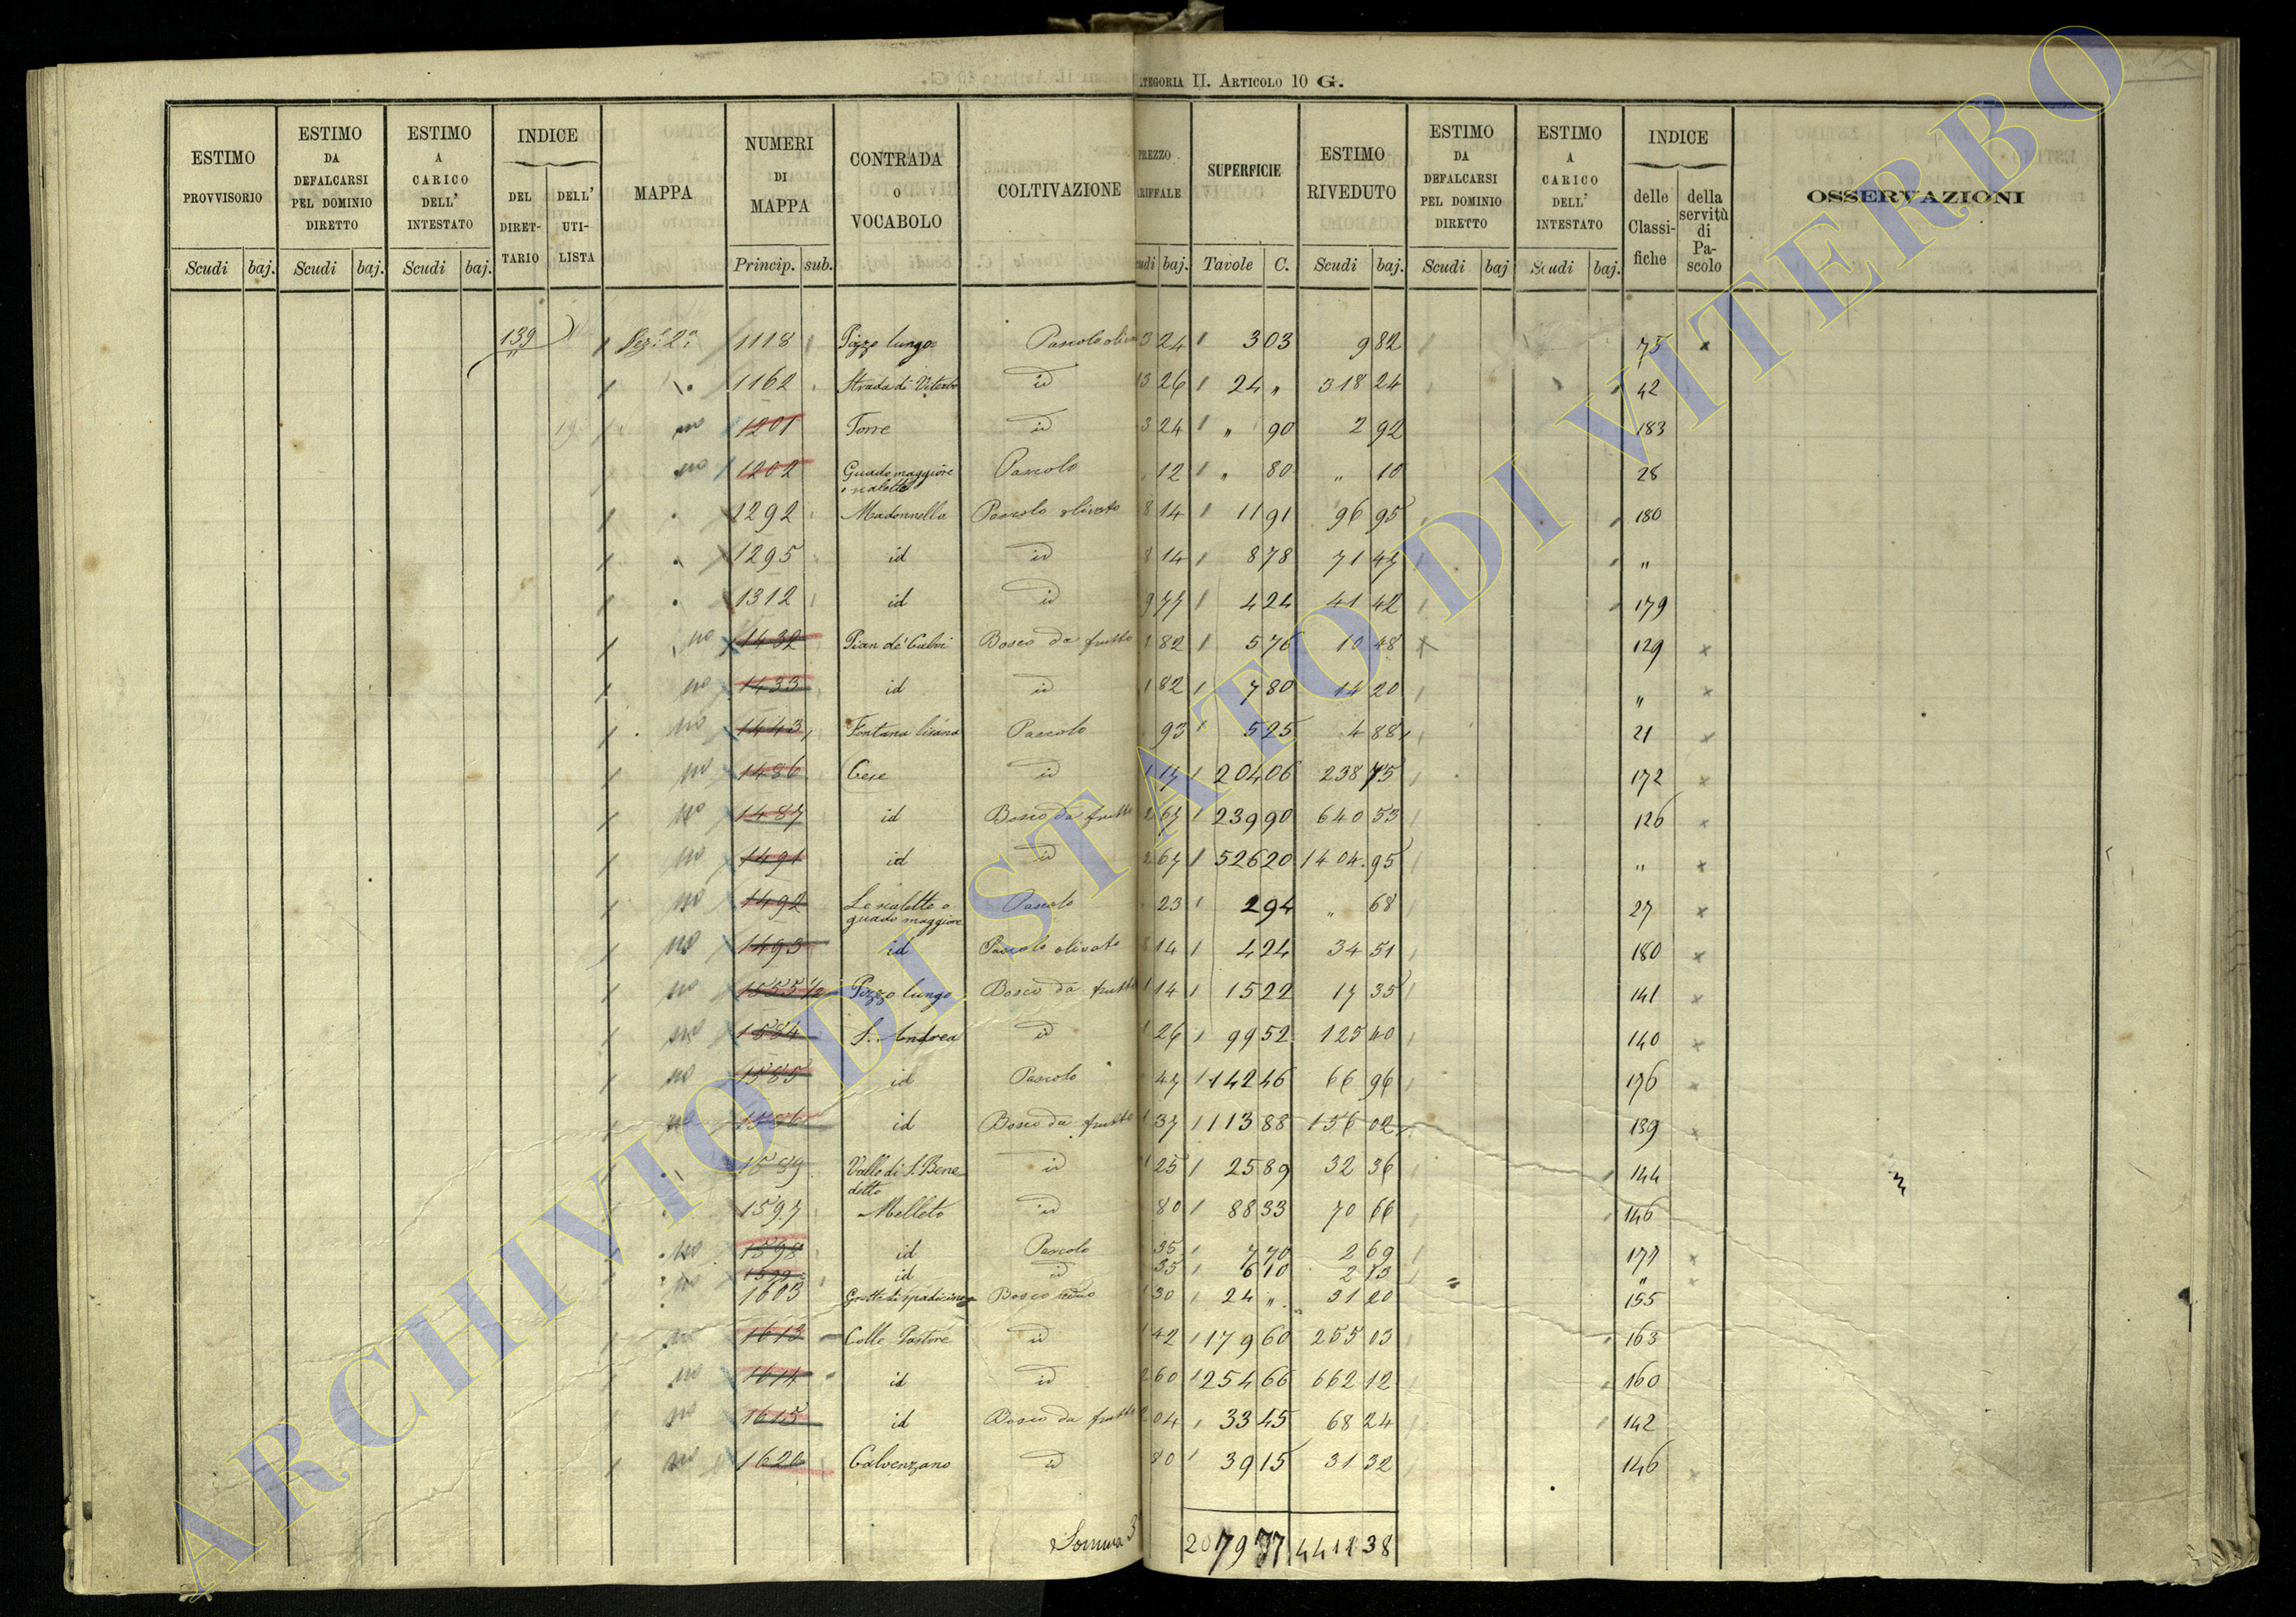 CATEGORIA II. ARTICOLO 10 G.
ESTIMO PROVVISORIO | ESTIMO DA DEFALCARSI PEL DOMINIO DIRETTO | ESTIMO A CARICO DELL' INTESTATO | INDICE DEL DIRETTARIO | DELL' UTILISTA | MAPPA | NUMERI DI MAPPA | CONTRADA O VOCABOLO | COLTIVAZIONE | PREZZO TARIFFALE | SUPERFICIE | ESTIMO RIVEDUTO | ESTIMO DA DEFALCARSI PEL DOMINIO DIRETTO | ESTIMO A CARICO DELL' INTESTATO | INDICE delle Classifiche | della servitù di Pascolo | OSSERVAZIONI
Scudi baj. Scudi baj. Scudi baj. Princip. sub. Scudi baj. Tavole C. Scudi baj. Scudi baj Scudi baj.
139 Sez. 2a 1118 Pizzo lungo Pascolo oliv 3 24 3 03 9 82 75 x
1162 Strada di Viterbo id 13 26 24 " 318 24 42
no 1201 Torre id 3 24 " 90 2 92 183
no 1202 Guado maggiore o scalette Pascolo 12 " 80 " 10 28
1292 Madonnella Pascolo olivato 8 14 11 91 96 95 180
1295 id id 8 14 8 78 71 47 "
1312 id id 9 77 4 24 41 42 179
no 1432 Pian de' Calvi Bosco da frutto 1 82 5 76 10 48 129 x
no 1433 id id 1 82 7 80 14 20 " x
no 1443 Fontana Pascolo 93 5 25 4 88 21 x
no 1486 Cese id 1 17 204 06 238 75 172 x
no 1487 id Bosco da frutto 2 67 239 90 640 53 126 x
no 1491 id id 2 67 526 20 1404 95 " x
no 1492 Le scalette o guado maggiore Pascolo 23 2 94 " 68 27 x
no 1493 id Pascolo olivato 8 14 4 24 34 51 180 x
no 1555 1/2 Pizzo lungo Bosco da frutto 1 14 15 22 17 35 141 x
no 1584 S. Andrea id 1 26 99 52 125 40 140 x
no 1585 id Pascolo 47 142 46 66 96 176 x
no 1586 id Bosco da frutto 1 37 113 88 156 02 139 x
1589 Valle di S. Benedetto id 1 25 25 89 32 36 144
1597 Melleto id 80 88 33 70 66 146
no 1598 id Pascolo 35 7 70 2 69 177 x
no 1599 id id 35 6 10 2 13 " x
1603 Grotte di Spadicino Bosco ceduo 1 30 24 " 31 20 155
no 1613 Colle Pastore id 1 42 179 60 255 03 163
no 1614 id id 2 60 254 66 662 12 160
no 1615 id Bosco da frutto 2 04 33 45 68 24 142
no 1620 Calvenzano id 80 39 15 31 32 146 x
Somma 2079 77 4411 38
ARCHIVIO DI STATO DI VITERBO